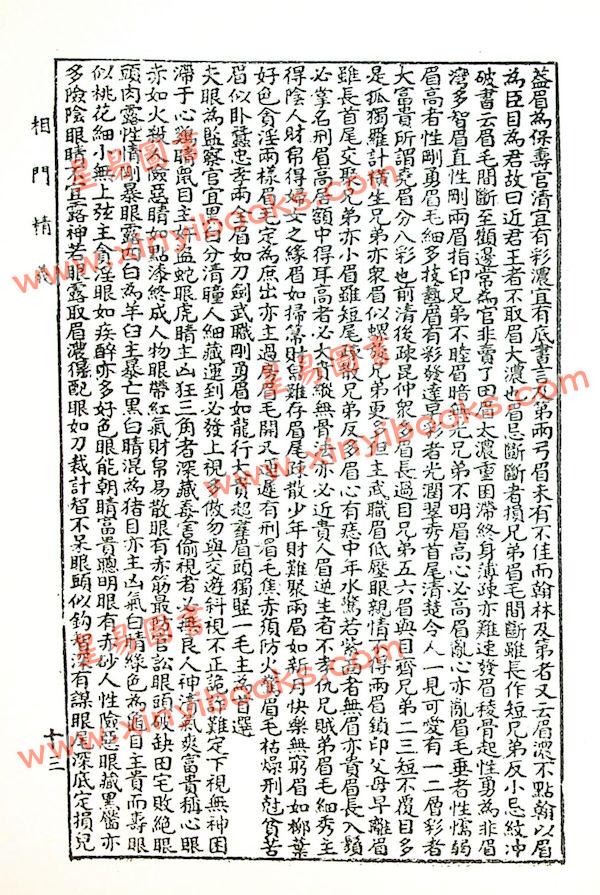 蓋眉為保壽官清宜有彩濃宜有底書言及第兩弓眉未有不佳而翰林及弟者又云眉濃不點翰以眉
為臣目為君故曰近君王者不取眉大濃也眉忌斷斷者損兄弟眉毛間斷雖長作短兄弟反小忌紋冲
破書云眉毛間斷至顴邊常為官非賣了田眉太濃重困滯終身薄疎亦難速發眉稜骨起性勇為非眉
灣多智眉直性剛兩眉指印兄弟不睦眉暗無光兄弟不明眉高心必高眉亂心亦亂眉毛垂者性懦弱
眉高者性剛勇眉毛細多技藝眉有彩發達早彩者光潤翠秀首尾清楚令人一見可愛有一二層彩者
大富貴所謂堯眉分八彩也前清後疎昆仲衆多眉長過目兄弟五六眉與目齊兄弟二三短不覆目多
是孤獨羅計橫生兄弟亦衆眉似螺髮兄弟更多但主武職眉低壓眼親情兩得兩眉鎖印父母早離眉
雖長首尾交聚兄弟亦小眉雖短尾疎散兄弟反多眉心有痣中年水驚若紫高者無眉亦貴眉長入鬢
必掌名刑眉高居額中得耳高者必大貴縱無骨清亦必近貴人眉逆生者不孝仇兄賊弟眉毛細秀主
得陰人財帛得婦女之緣眉如掃箒財帛難存眉尾疎散少年財難聚兩眉如新月快樂無窮眉如柳葉
好色貪淫兩樣眉毛定為庶出亦主過房眉毛開叉更遲有刑眉毛焦赤須防火驚眉毛枯燥刑尅貧苦
眉似卧蠶忠孝兩全眉如刀劍武職剛勇眉如龍行大貴超羣眉頭獨竪一毛主
夫眼為監察官宜黑白分清瞳人細藏運到必發上視多傲勿與交遊斜視不正詭詐難定下視無神困
滯于心鷄睛鼠目主奸盗蛇眼虎睛主凶狂三角者深藏毒害偷視者必無良人神清氣爽富貴稱心眼
亦如火殺人險惡睛如點漆終成人物眼帶紅氣財帛易散眼有赤筋最防官訟眼頭破缺田宅敗絶眼
頭肉露性情剛暴眼露四白為羊曰主暴亡黑白睛混為猪目亦主凶氣白睛綠色為道目主貴而壽眼
似桃花細小無上弦主貪淫眼如疾醉亦多好色眼能朝晴富貴聰明眼有赤砂人性險惡眼藏黑鬱亦
多險陰眼睛不宜露神若眼露取眉濃得配眼如刀裁計智不呆眼頭似鈎智深有謀眼毛深底定損兒
相門精義
十三
星易图書
www.xinyibooks.com
星易图書
www.xinyibooks.com
星易图書
www.xinyibooks.com